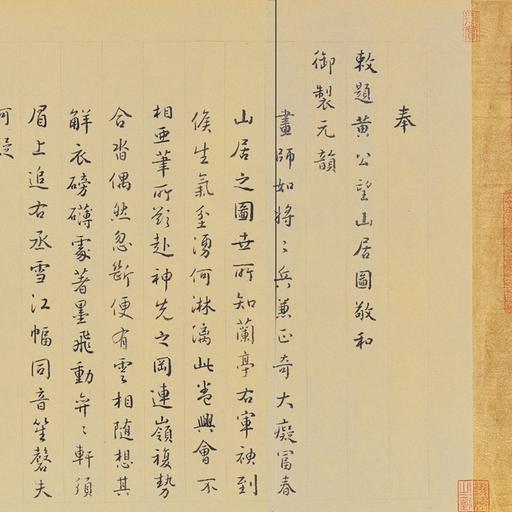 奉
敕題黃公望山居圖敬和
御製元韻
畫師如將將兵兼正奇大癡富春
山居之圖世所知蘭亭右軍神到
候生氣坌湧何淋漓此卷興會不
相亞筆所欲赴神先之岡連嶺複勢
合沓偶然忽斷便有雲相隨想其
解衣磅礴處著墨飛動弁弁軒須
眉上追右丞雪江幅同音笙磬夫
何疑